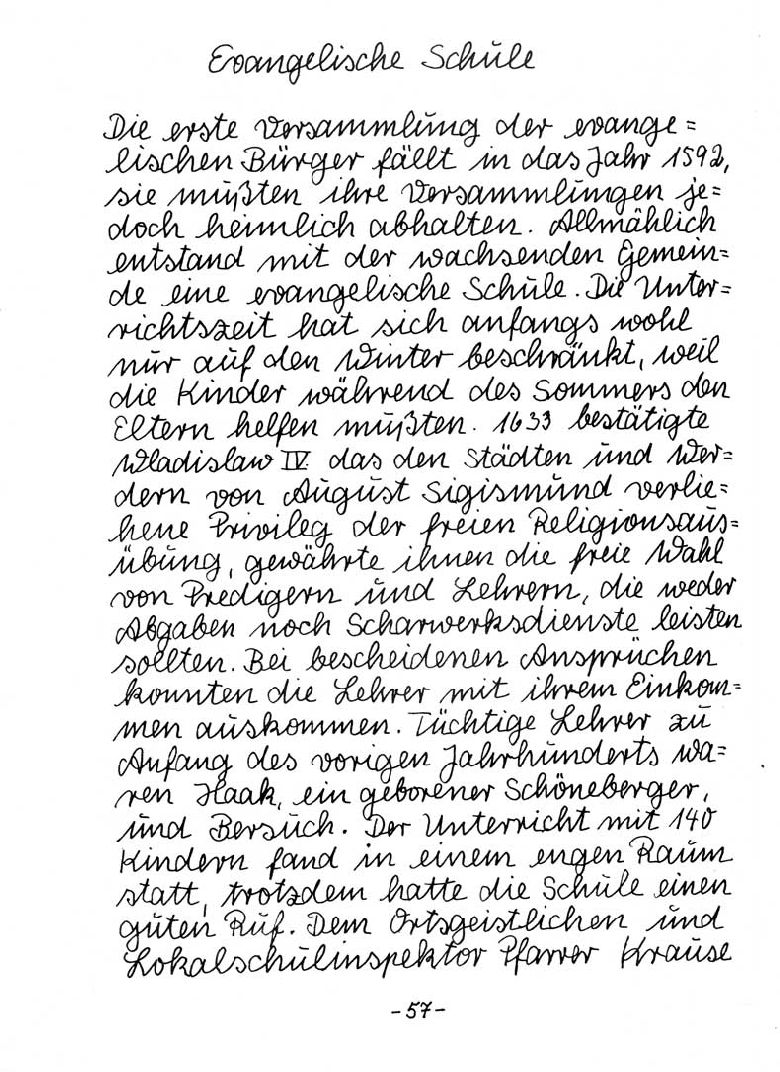 Evangelische Schule
Die erste Versammlung der evange=
lischen Bürger fällt in das Jahr 1592,
sie mußten ihre Versammlungen je=
doch heimlich abhalten. Allmählich
entstand mit der wachsenden Gemein=
de eine evangelische Schule. Die Unter=
richtszeit hat sich anfangs wohl
nur auf den Winter beschränkt, weil
die Kinder während des Sommers den
Eltern helfen mußten. 1633 bestätigte
Wladislaw IV. das den Städten und Wer=
dern von August Sigismund verlie=
hene Privileg der freien Religionsaus=
übung, gewährte ihnen die freie Wahl
von Predigern und Lehrern, die weder
Abgaben noch Scharwerksdienste leisten
sollten. Bei bescheidenen Ansprüchen
konnten die Lehrer mit ihrem Einkom=
men auskommen. Tüchtige Lehrer zu
Anfang des vorigen Jahrhunderts wa=
ren Haak, ein geborener Schöneberger,
und Bersuch. Der Unterricht mit 140
Kindern fand in einem engen Raum
statt, trotzdem hatte die Schule einen
guten Ruf. Dem Ortsgeistlichen und
Lokalschulinspektor Pfarrer Krause
-57-